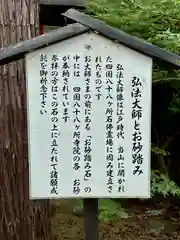 弘法大師とお砂踏み
弘法大師像は江戸時代 当山に開かれ
た四国八十八ヶ所石佛霊場に因み建立さ
れたものです
お大師さまの前にある「お砂踏み石」の
中には 四国八十八ヶ所寺院の各 お砂
が奉納されています
参拝の方はこの石の上に立たれて諸願成
就を御祈念下さい